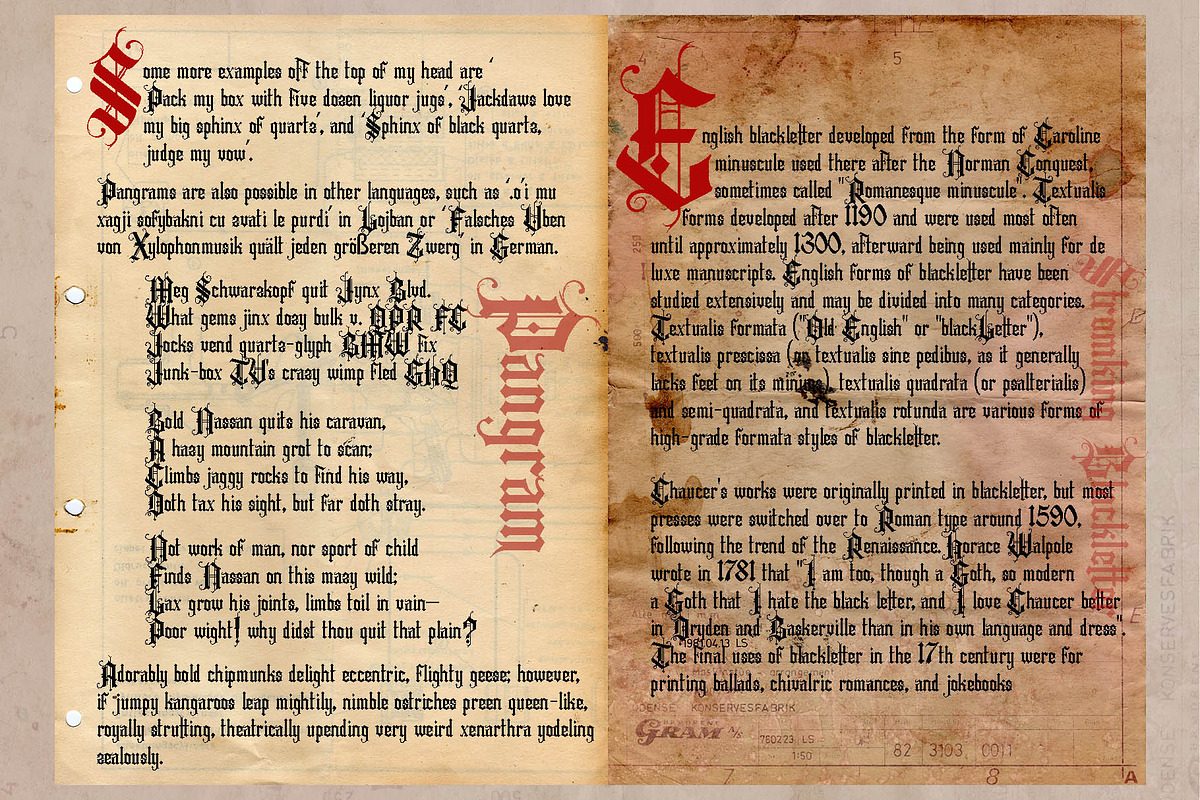 Some more examples off the top of my head are '
Pack my box with five dozen liquor jugs', 'Jackdaws love
my big sphinx of quartz', and 'Sphinx of black quartz,
judge my vow'.
Pangrams are also possible in other languages, such as '.o'i mu
xagji sofybakni cu zvati le purdi' in Lojban or 'Falsches Üben
von Xylophonmusik quält jeden größeren Zwerg' in German.
Meg Schwarzkopf quit Jynx Blvd.
What gems jinx dozy bulk v. QPR FC
Jocks vend quartz-glyph BMW fix
Junk-box TV's crazy wimp fled GHQ
Bold Hassan quits his caravan,
A hazy mountain grot to scan;
Climbs jaggy rocks to find his way,
Doth tax his sight, but far doth stray.
Not work of man, nor sport of child
Finds Hassan on this mazy wild;
Lax grow his joints, limbs toil in vain—
Poor wight! why didst thou quit that plain?
Adorably bold chipmunks delight eccentric, flighty geese; however,
if jumpy kangaroos leap mightily, nimble ostriches preen queen-like,
royally strutting, theatrically upending very weird xenarthra yodeling
zealously.
Pangram
English blackletter developed from the form of Caroline
minuscule used there after the Norman Conquest,
sometimes called "Romanesque minuscule". Textualis
forms developed after 1190 and were used most often
until approximately 1300, afterward being used mainly for de
luxe manuscripts. English forms of blackletter have been
studied extensively and may be divided into many categories.
Textualis formata ("Old English" or "blackLetter"),
textualis prescissa (or textualis sine pedibus, as it generally
lacks feet on its minims), textualis quadrata (or psalterialis)
and semi-quadrata, and textualis rotunda are various forms of
high-grade formata styles of blackletter.
Chaucer's works were originally printed in blackletter, but most
presses were switched over to Roman type around 1590,
following the trend of the Renaissance. Horace Walpole
wrote in 1781 that "I am too, though a Goth, so modern
a Goth that I hate the black letter, and I love Chaucer better
in Dryden and Baskerville than in his own language and dress".
The final uses of blackletter in the 17th century were for
printing ballads, chivalric romances, and jokebooks
Blackletter
5
4
250
500
1981.04.13 LS
ODENSE KONSERVESFABRIK
GRAM A/S
760223 LS
1:50
82 3103 0011
7
8
A
B
E
ODENSE KONSERVESFABRIK